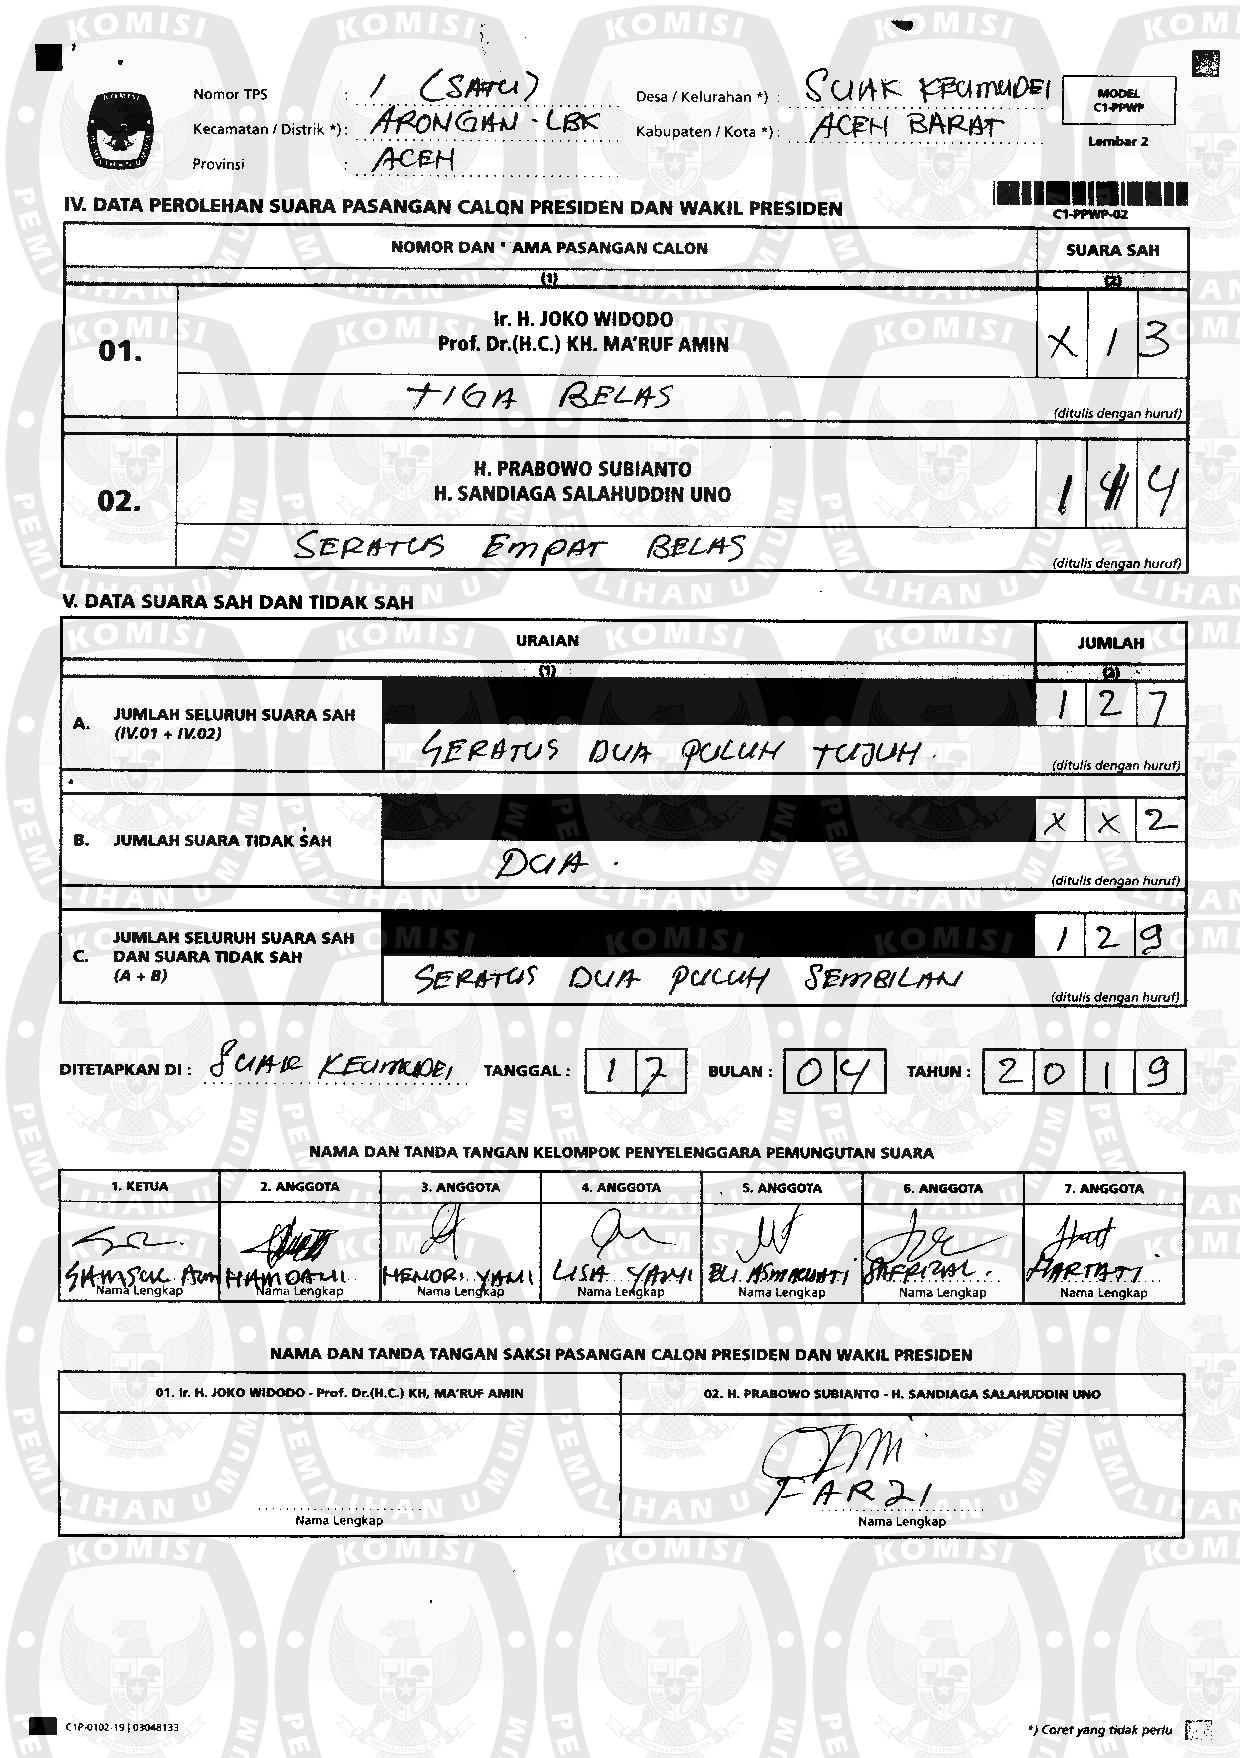 Nomor TPS : 1 (SATU)
Desa / Kelurahan *) : SUAK KEUMUDEI
MODEL
C1-PPWP
Kecamatan / Distrik *) : ARONGAN - LBK
Kabupaten / Kota *) : ACEH BARAT
Lembar 2
Provinsi : ACEH
IV. DATA PEROLEHAN SUARA PASANGAN CALON PRESIDEN DAN WAKIL PRESIDEN
C1-PPWP-02
NOMOR DAN AMA PASANGAN CALON SUARA SAH
(1) (2)
01. Ir. H. JOKO WIDODO
Prof. Dr.(H.C.) KH. MA'RUF AMIN X 1 3
TIGA BELAS
(ditulis dengan huruf)
02. H. PRABOWO SUBIANTO
H. SANDIAGA SALAHUDDIN UNO 1 4
SERATUS EMPAT BELAS
(ditulis dengan huruf)
V. DATA SUARA SAH DAN TIDAK SAH
URAIAN JUMLAH
(1) (2)
A. JUMLAH SELURUH SUARA SAH
(IV.01 + IV.02) 1 2 7
SERATUS DUA PULUH TUJUH.
(ditulis dengan huruf)
B. JUMLAH SUARA TIDAK SAH X X 2
DUA.
(ditulis dengan huruf)
C. JUMLAH SELURUH SUARA SAH
DAN SUARA TIDAK SAH
(A + B) 1 2 9
SERATUS DUA PULUH SEMBILAN
(ditulis dengan huruf)
DITETAPKAN DI : SUAK KEUMUDEI TANGGAL : 1 7 BULAN : 0 4 TAHUN : 2 0 1 9
NAMA DAN TANDA TANGAN KELOMPOK PENYELENGGARA PEMUNGUTAN SUARA
1. KETUA 2. ANGGOTA 3. ANGGOTA 4. ANGGOTA 5. ANGGOTA 6. ANGGOTA 7. ANGGOTA
SAMSUL HAMDANI HENDRI YAMI LISA YAMI ELI ASMAWATI SAFRIZAL. HARTATI
Nama Lengkap Nama Lengkap Nama Lengkap Nama Lengkap Nama Lengkap Nama Lengkap Nama Lengkap
NAMA DAN TANDA TANGAN SAKSI PASANGAN CALON PRESIDEN DAN WAKIL PRESIDEN
01. Ir. H. JOKO WIDODO - Prof. Dr.(H.C.) KH, MA'RUF AMIN
02. H. PRABOWO SUBIANTO - H. SANDIAGA SALAHUDDIN UNO
FARZI
Nama Lengkap Nama Lengkap
C1P-0102-19 | 03048133
*) Coret yang tidak perlu